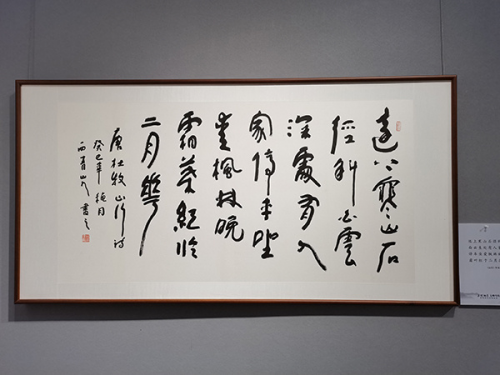 遠上寒山石
径斜白雲
深處有人
家停车坐
爱楓林晚
霜葉紅於
二月華
唐杜牧山行诗
癸巳年月
山人書之